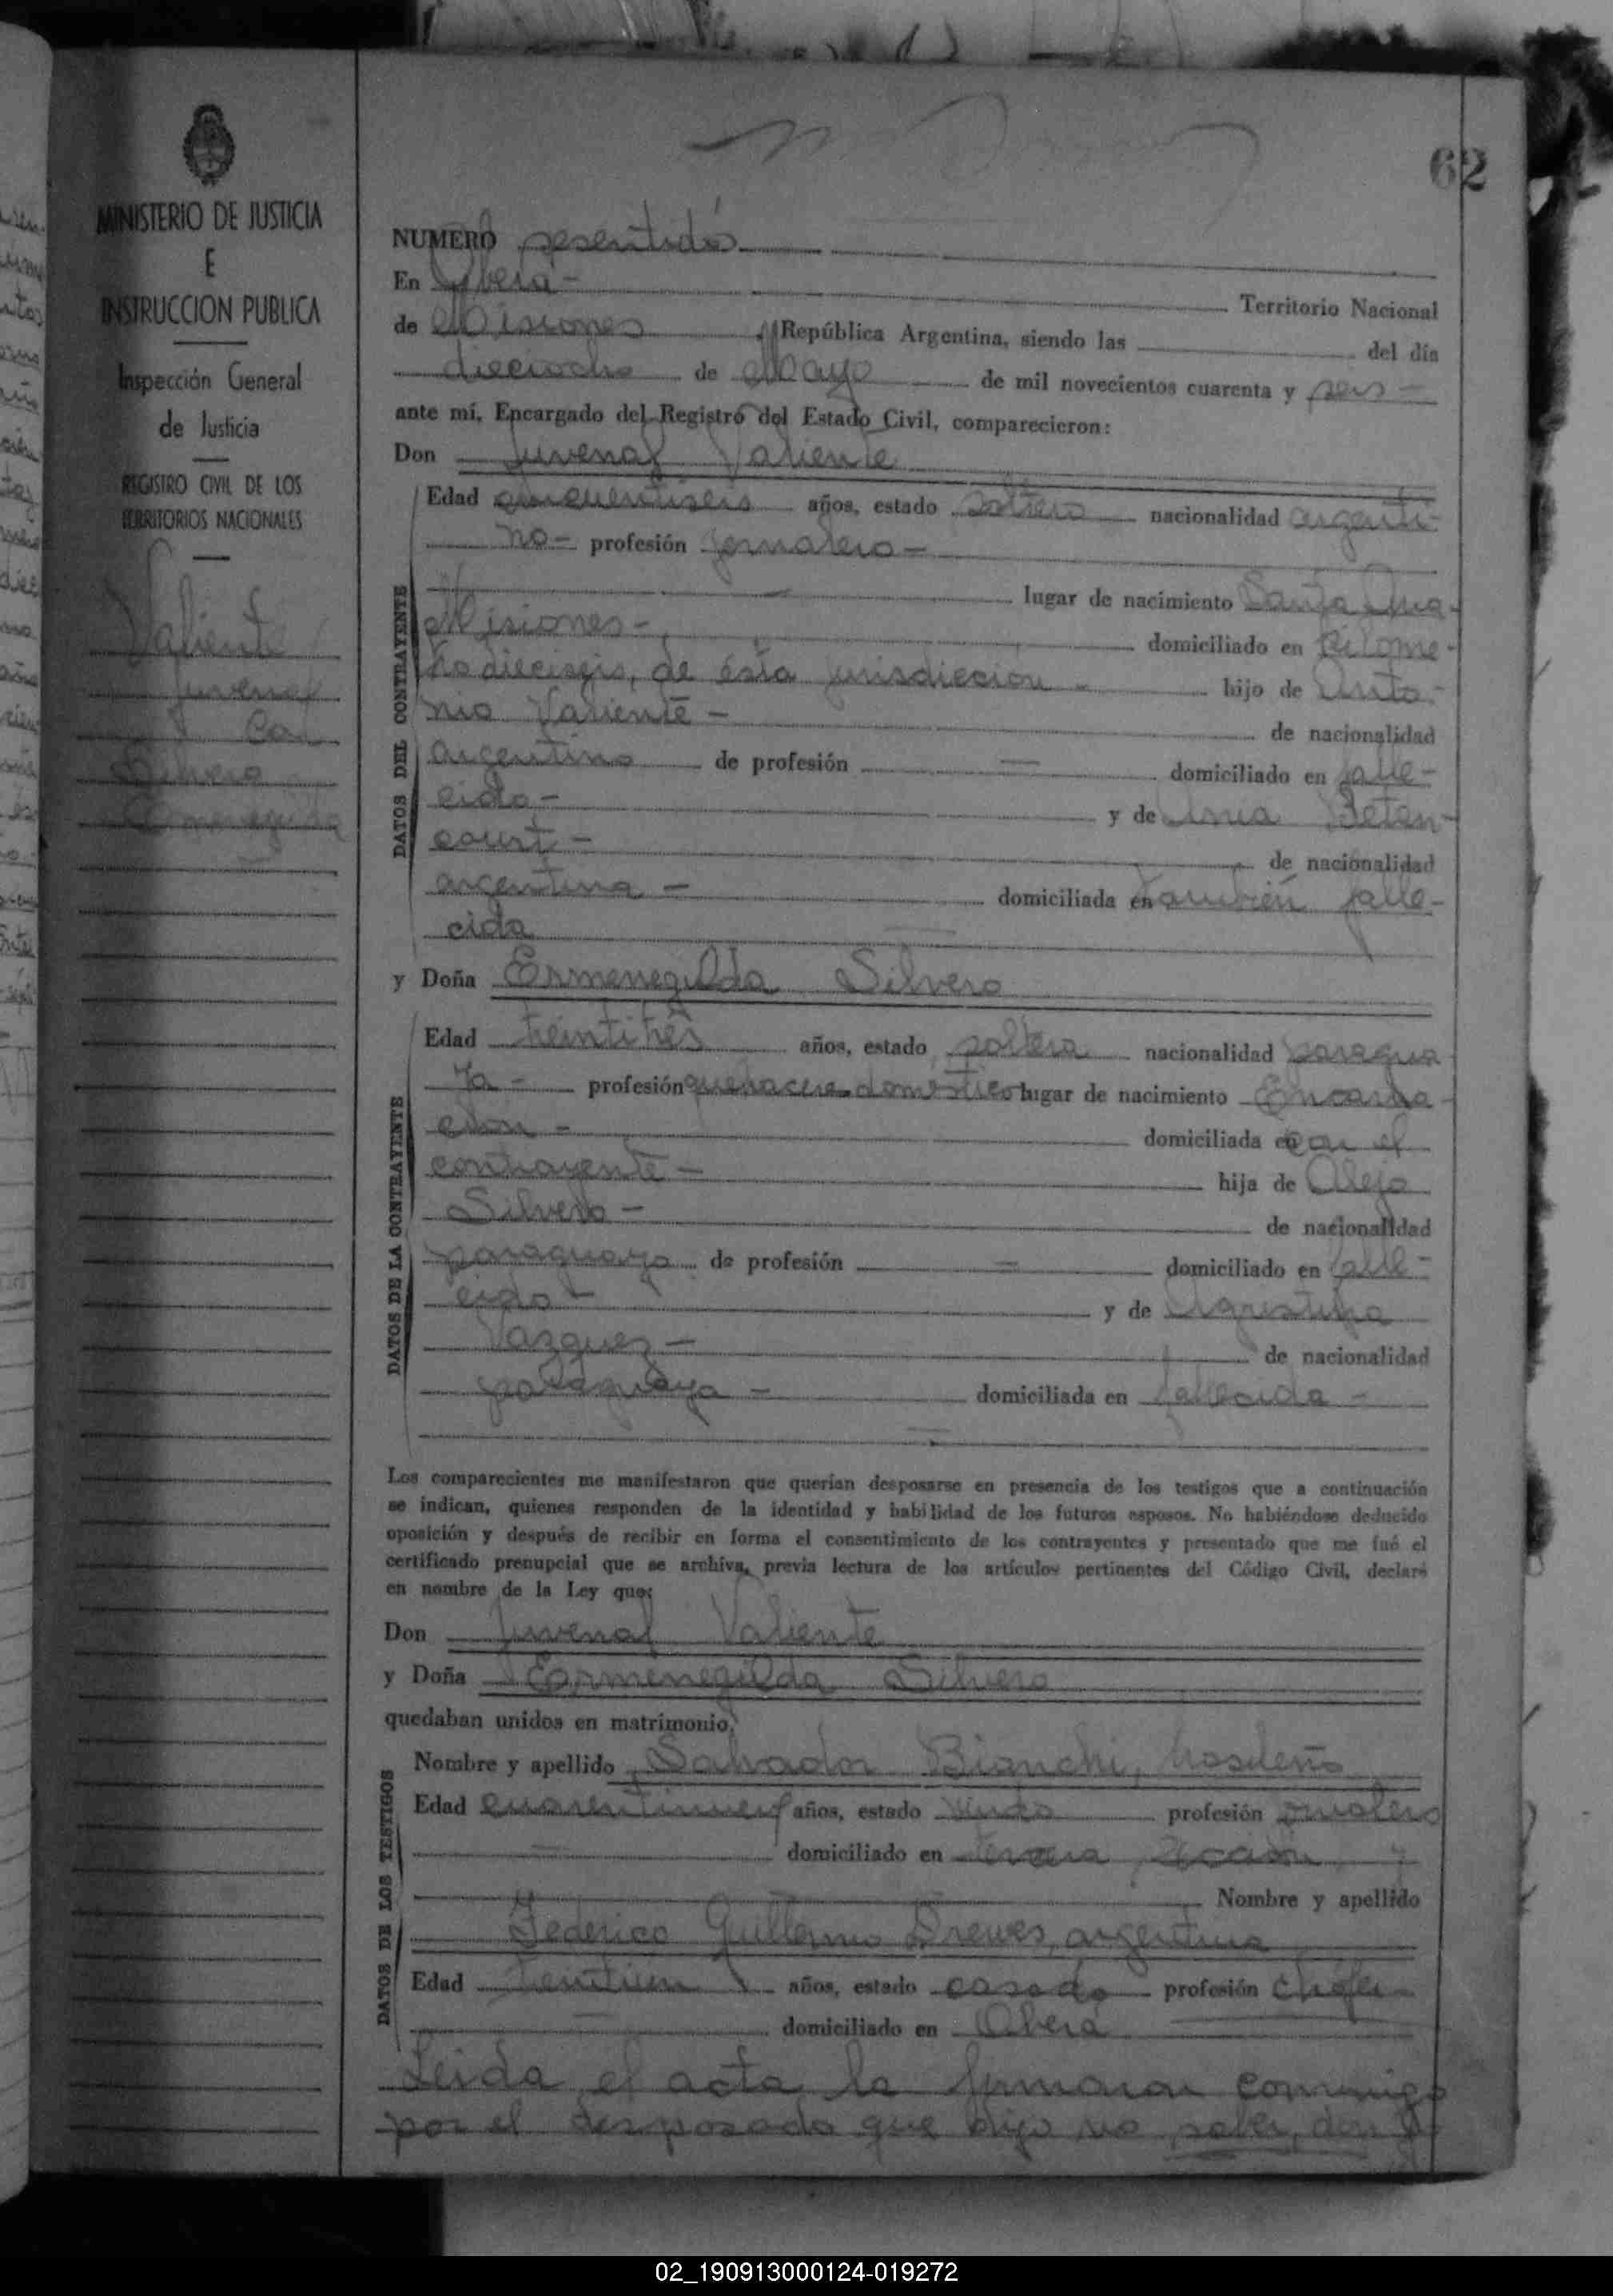 62
MINISTERIO DE JUSTICIA
E
INSTRUCCION PUBLICA
Inspección General
de Justicia
REGISTRO CIVIL DE LOS
TERRITORIOS NACIONALES
Valiente
Juvenal
Con
Silvero
Ermenegilda
NUMERO sesentidós
En Oberá -
Territorio Nacional
de Misiones, República Argentina, siendo las del día
dieciocho de Mayo de mil novecientos cuarenta y seis -
ante mí, Encargado del Registro del Estado Civil, comparecieron:
Don Juvenal Valiente
DATOS DEL CONTRAYENTE
Edad cincuentiseis años, estado soltero nacionalidad argenti-
no - profesión jornalero -
lugar de nacimiento Santa Ana -
Misiones - domiciliado en Kilome-
tro dieciseis, de ésta jurisdiccion - hijo de Anto-
nio Valiente - de nacionalidad
argentino de profesión — domiciliado en falle-
cido - y de Ana Betan-
court - de nacionalidad
argentina - domiciliada en también falle-
cida
y Doña Ermenegilda Silvero
DATOS DE LA CONTRAYENTE
Edad treintitrés años, estado soltera nacionalidad paragua-
ya - profesión quehacere domestico lugar de nacimiento Encarna-
ción - domiciliada en con el
contrayente - hija de Alejo
Silvero - de nacionalidad
paraguayo de profesión = domiciliado en falle-
cido - y de Agustina
Vazquez - de nacionalidad
paraguaya - domiciliada en fallecida -
Los comparecientes me manifestaron que querían desposarse en presencia de los testigos que a continuación
se indican, quienes responden de la identidad y habilidad de los futuros esposos. No habiéndose deducido
oposición y después de recibir en forma el consentimiento de los contrayentes y presentado que me fué el
certificado prenupcial que se archiva, previa lectura de los artículos pertinentes del Código Civil, declaré
en nombre de la Ley que:
Don Juvenal Valiente
y Doña Ermenegilda Silvero
quedaban unidos en matrimonio.
DATOS DE LOS TESTIGOS
Nombre y apellido Salvador Bianchi,
Edad años, estado viudo profesión
domiciliado en tercera Sección, y
Nombre y apellido
Federico Guillermo Drewes, argentino
Edad treintiun años, estado casado profesión chófer -
domiciliado en Oberá
Leida el acta la firmaron conmigo
por el desposado que dijo no saber, don
02_190913000124-019272